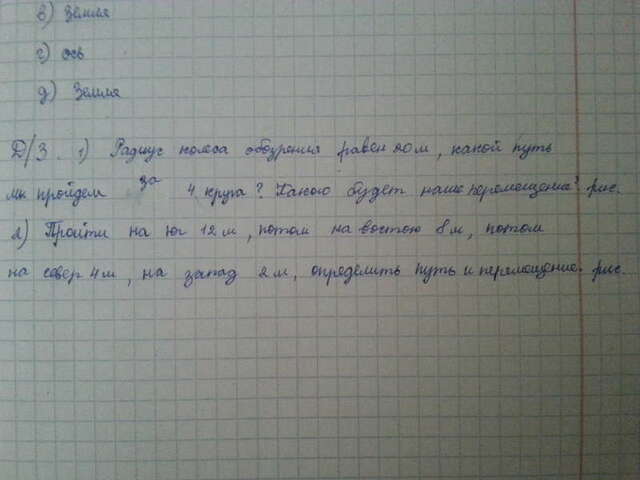 в) Земля
г) ось
д) Земля
Д/З. 1) Радиус колеса обозрения равен 20 м, какой путь
мы пройдем за 4 круга? Какою будет наше перемещение? рис.
2) Пройти на юг 12 м, потом на восток 8 м, потом
на север 4 м, на запад 2 м, определить путь и перемещение. рис.